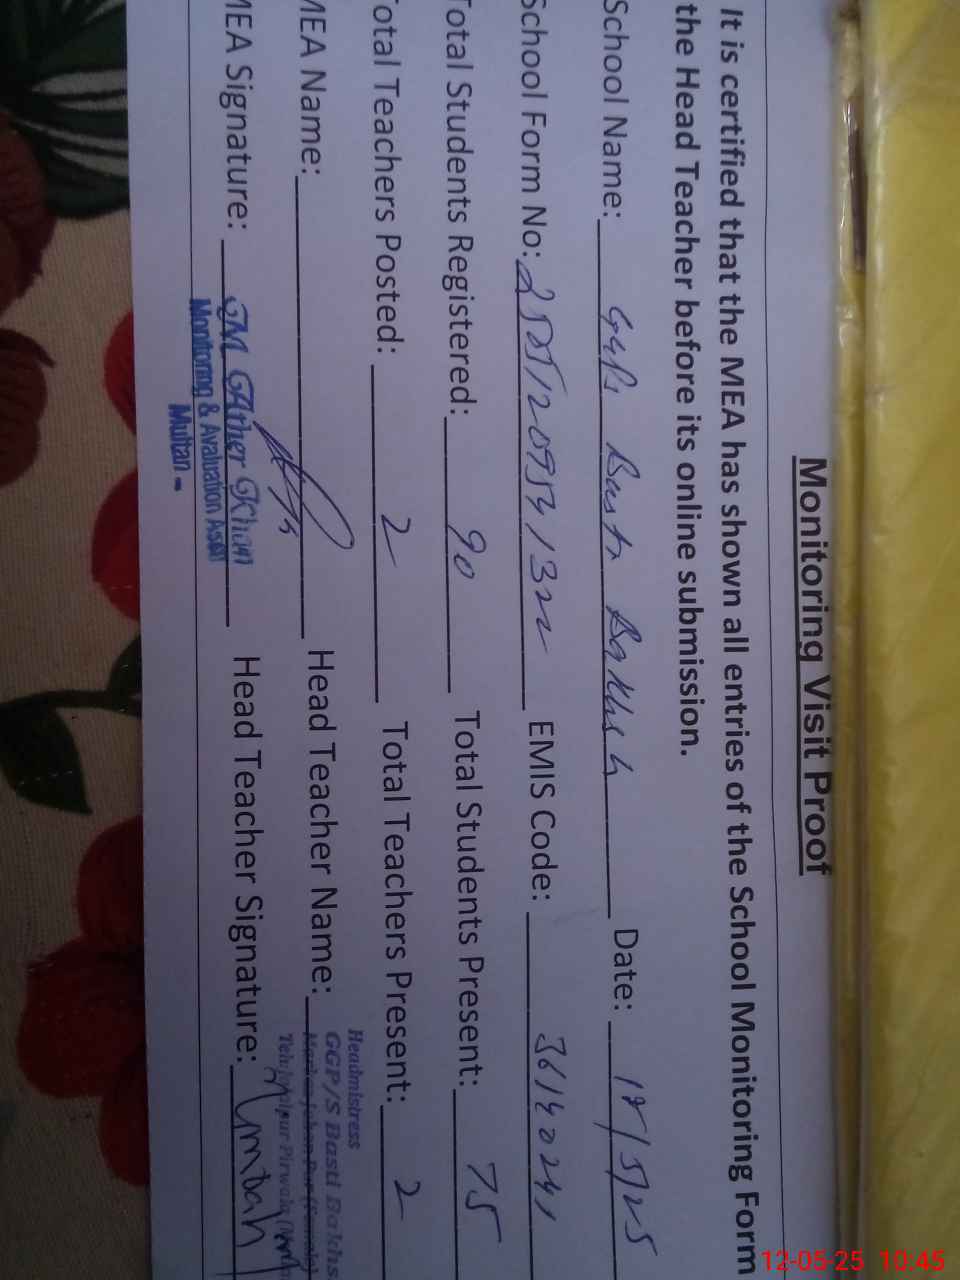 Monitoring Visit Proof
It is certified that the MEA has shown all entries of the School Monitoring Form
the Head Teacher before its online submission.
School Name: GGPS Basti Bakhsh Date: 12/5/25
School Form No: EMIS Code: 36140241
Total Students Registered: 90 Total Students Present: 75
Total Teachers Posted: 2 Total Teachers Present: 2
MEA Name: Head Teacher Name:
Headmistress
GGP/S Basti Bakhs
MEA Signature: Head Teacher Signature:
GM Ather Khan
Monitoring & Avaluation Asstt
Multan -
12-05-25 10:45